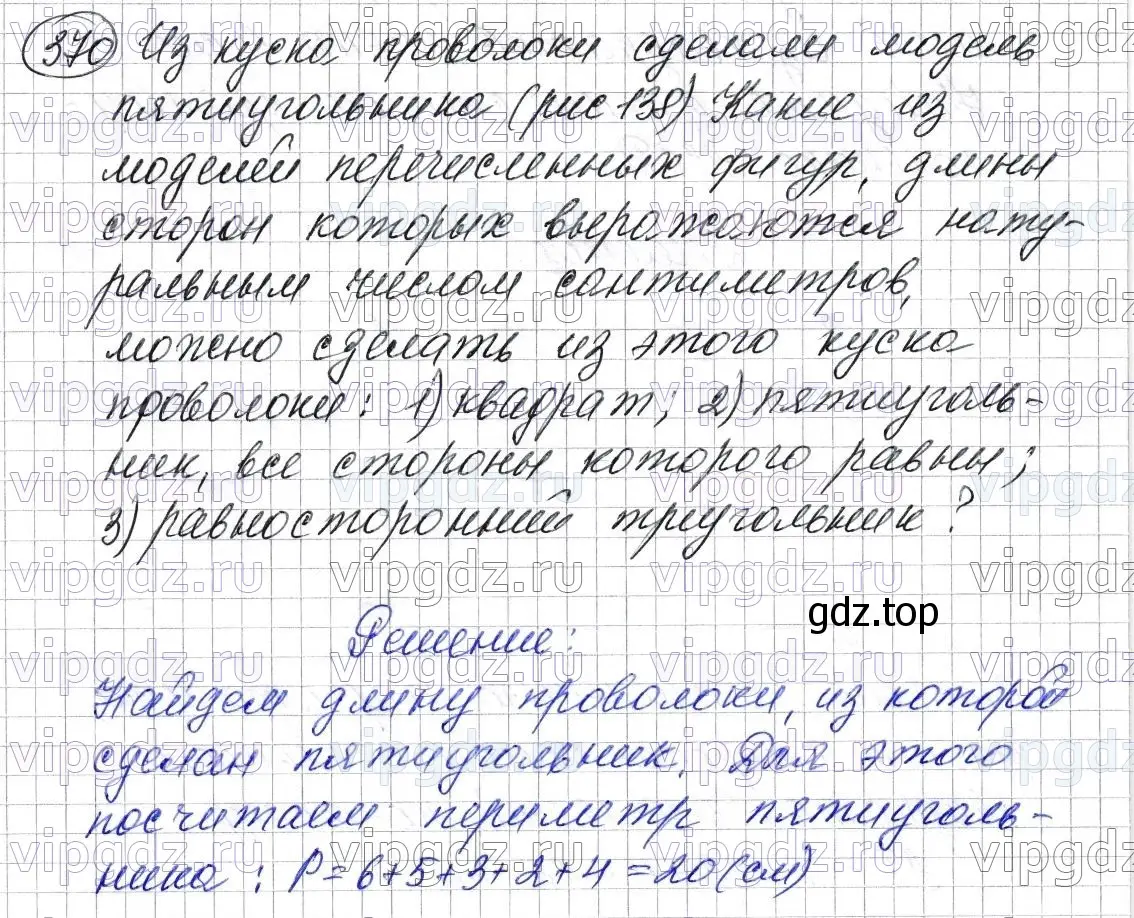 370 Из куска проволоки сделали модель
пятиугольника (рис 138) Какие из
моделей перечисленных фигур, длины
сторон которых выражаются нату-
ральным числом сантиметров,
можно сделать из этого куска
проволоки: 1) квадрат; 2) пятиуголь-
ник, все стороны которого равны;
3) равносторонний треугольник?
gdz.top
Решение:
Найдем длину проволоки, из которой
сделан пятиугольник. Для этого
посчитаем периметр пятиуголь-
ника: P=6+5+3+2+4=20(см)
vipgdz.ru